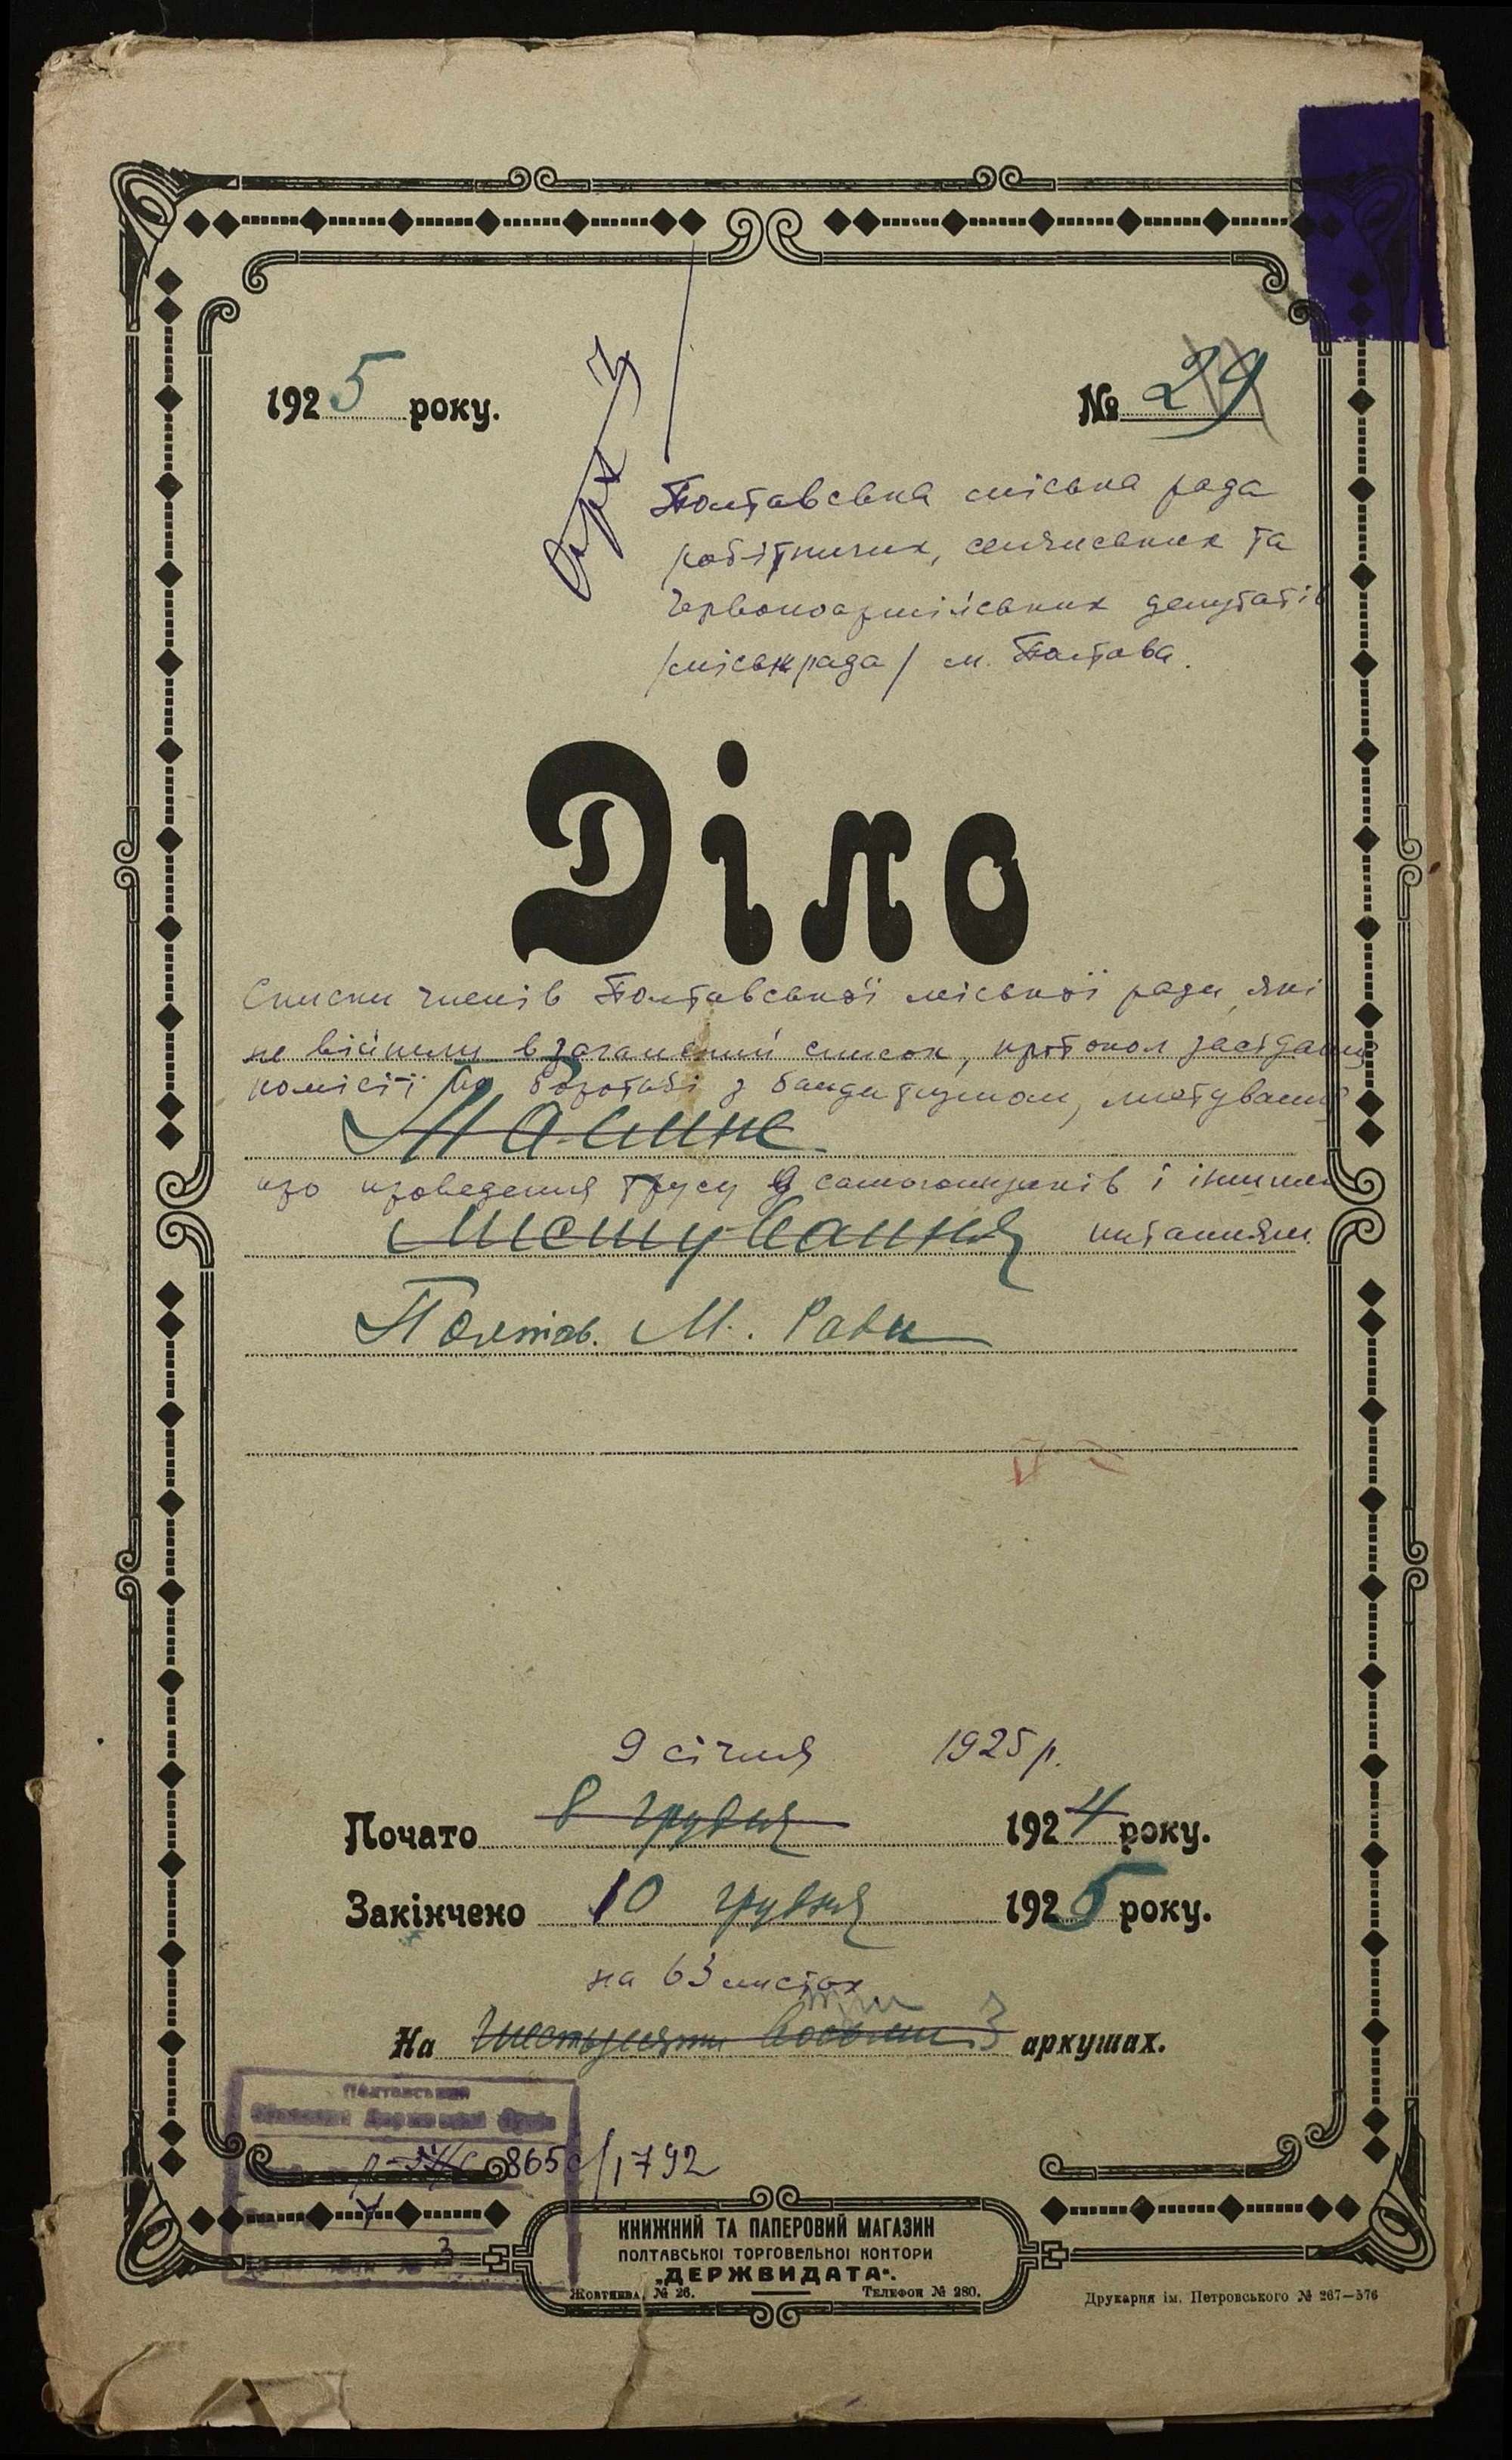 1925 року.
№ 29
Полтавська міська рада
робітничих, селянських та
червоноармійських депутатів
/міськрада/ м. Полтава.
Діло
Списки членів Полтавської міської ради, які
не війшли в загальний список, протокол засідання
комісії по боротьбі з бандитизмом, листування
Таємне
про проведення трусу у самогонщиків і іншими
Листування питанням
Полтав. М. Ради
9 січня 1925 р.
Почато 8 грудня 1924 року.
Закінчено 10 грудня 1925 року.
на 63 листах
три
На шестьдесяти восьми 3 аркушах.
Полтавський
865с/1792
3
КНИЖНИЙ ТА ПАПЕРОВИЙ МАГАЗИН
ПОЛТАВСЬКОІ ТОРГОВЕЛЬНОІ КОНТОРИ
„ДЕРЖВИДАТА“.
Жовтнева, № 26. Телефон № 280.
Друкарня ім. Петровського № 267—576